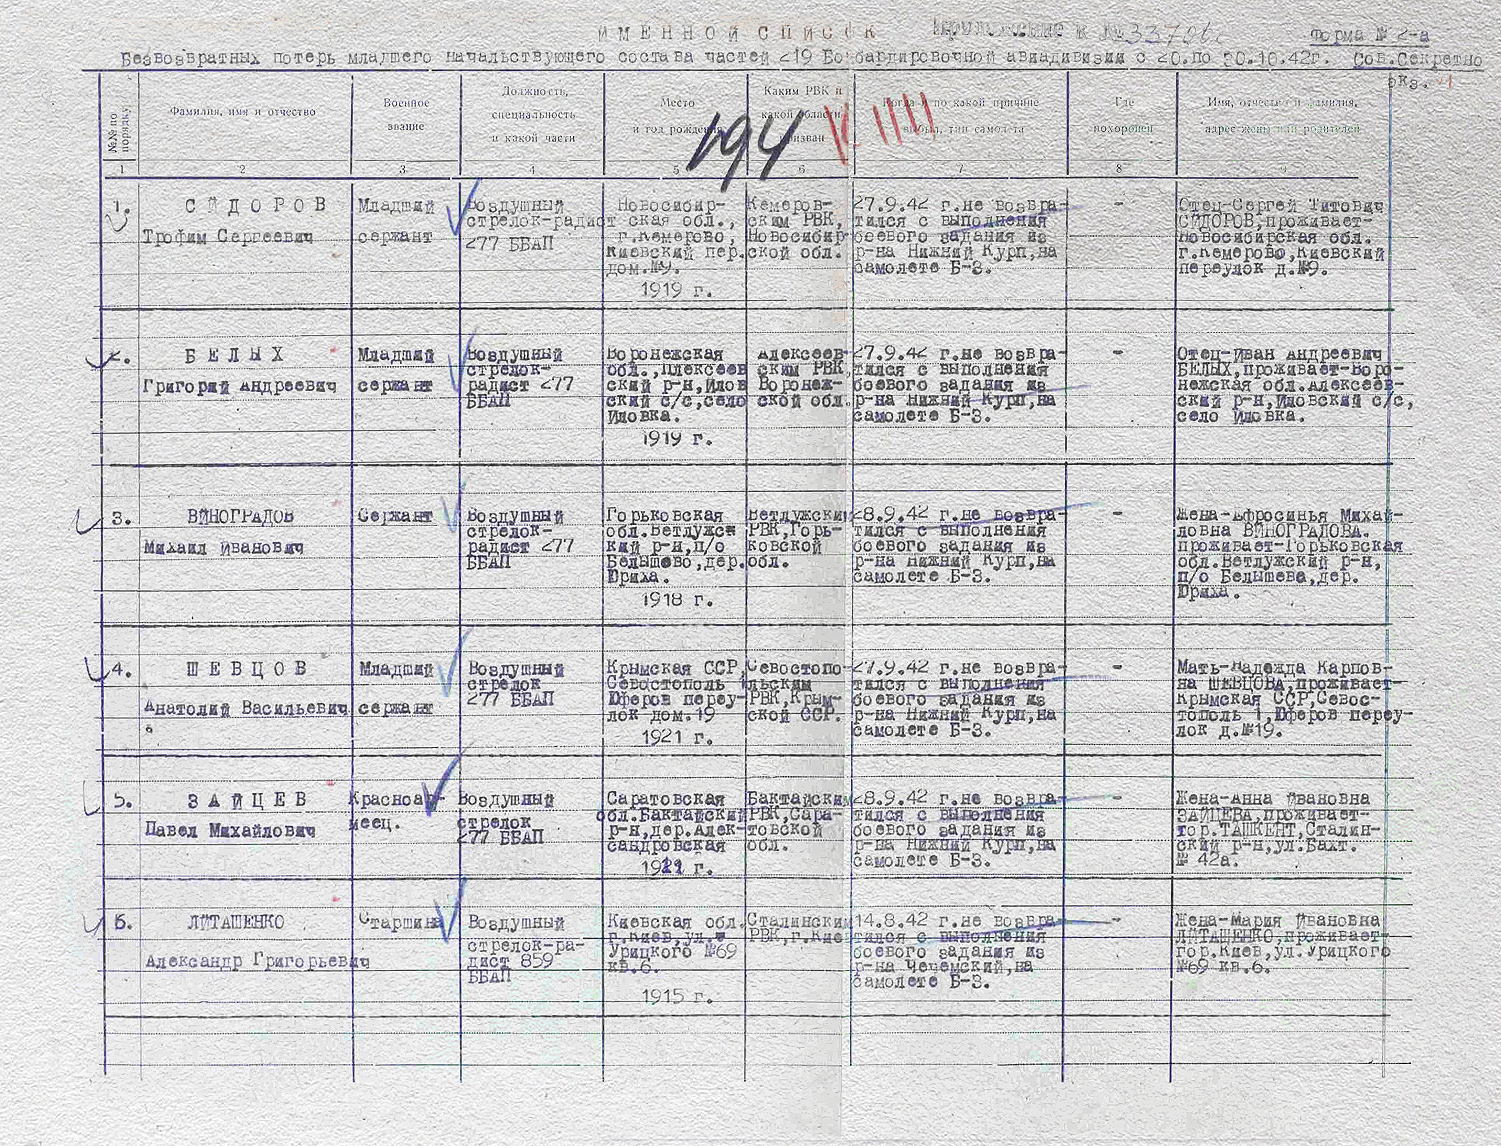 ИМЕННОЙ СПИСОК
Форма № 2-а
Безвозвратных потерь младшего начальствующего состава частей 219 Бомбардировочной авиадивизии с 20.по 30.10.42г. Сов.Секретно
экз.
№№ по порядку
Фамилия, имя и отчество
Военное звание
Должность, специальность и какой части
Место и год рождения
Каким РВК и какой области призван
Когда и по какой причине выбыл, тип самолета
Где похоронен
Имя, отчество и фамилия, адрес жены или родителей
194
1 2 3 4 5 6 7 8 9
1.
СИДОРОВ
Трофим Сергеевич
Младший
сержант
Воздушный
стрелок-радист
277 ББАП
Новосибир-
ская обл.,
г.Кемерово,
Киевский пер.
дом.№9.
1919 г.
Кемеров-
ским РВК,
Новосибир-
ской обл.
27.9.42 г.не возвра-
тился с выполнения
боевого задания из
р-на Нижний Курп,на
самолете Б-3.
-
Отец-Сергей Титович
СИДОРОВ,проживает-
Новосибирская обл.
г.Кемерово,Киевский
переулок д.№9.
2.
БЕЛЫХ
Григорий Андреевич
Младший
сержант
Воздушный
стрелок-
радист 277
ББАП
Воронежская
обл.,Алексеев
ский р-н,Илов
ский с/с,село
Иловка.
1919 г.
Алексеев-
ским РВК
Воронеж-
ской обл.
27.9.42 г.не возвра-
тился с выполнения
боевого задания из
р-на Нижний Курп,на
самолете Б-3.
-
Отец-Иван Андреевич
БЕЛЫХ,проживает-Воро-
нежская обл.Алексеев-
ский р-н,Иловский с/с,
село Иловка.
3.
ВИНОГРАДОВ
Михаил Иванович
Сержант
Воздушный
стрелок-
радист 277
ББАП
Горьковская
обл.Ветлужс-
кий р-н,п/о
Белышево,дер.
Юриха.
1918 г.
Ветлужским
РВК,Горь-
ковской
обл.
28.9.42 г.не возвра-
тился с выполнения
боевого задания из
р-на Нижний Курп,на
самолете Б-3.
Жена-Афросинья Михай-
ловна ВИНОГРАДОВА.
проживает-Горьковская
обл.Ветлужский р-н,
п/о Белышева,дер.
Юриха.
4.
ШЕВЦОВ
Анатолий Васильевич
Младший
сержант
Воздушный
стрелок
277 ББАП
Крымская ССР,
Севастополь
Юферов переу-
лок дом.19
1921 г.
Севостопо-
льским
РВК,Крым-
ской ССР.
27.9.42 г.не возвра-
тился с выполнения
боевого задания из
р-на Нижний Курп,на
самолете Б-3.
-
Мать-Надежда Карпов-
на ШЕВЦОВА,проживает-
Крымская ССР,Севос-
тополь 1,Юферов переу-
лок д.№19.
5.
ЗАЙЦЕВ
Павел Михайлович
Красноар-
меец.
Воздушный
стрелок
277 ББАП
Саратовская
обл.Бактайский
р-н,дер.Алек-
сандровская
1921 г.
Бактайским
РВК,Сара-
товской
обл.
28.9.42 г.не возвра-
тился с выполнения
боевого задания из
р-на Нижний Курп,на
самолете Б-3.
-
Жена-Анна Ивановна
ЗАЙЦЕВА,проживает-
гор.ТАШКЕНТ,Сталин-
ский р-н,ул.Бахт.
№ 42а.
6.
ЛИТАШЕНКО
Александр Григорьевич
Старшина
Воздушный
стрелок-ра-
дист 859
ББАП
Киевская обл.
г.Киев,ул.
Урицкого №69
кв.6.
1915 г.
Сталинским
РВК,г.Киев
14.8.42 г.не возвра-
тился с выполнения
боевого задания из
р-на Чечемский,на
самолете Б-3.
-
Жена-Мария Ивановна
ЛИТАШЕНКО,проживает-
гор.Киев,ул.Урицкого
№69 кв.6.